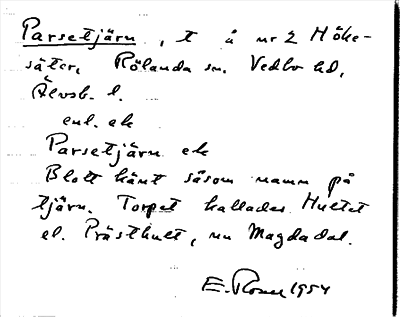 Parsetjärn, t å nr 2 Höke-
säter, Rölanda sn. Vedbo hd,
Älvsb. l.
enl. ek
Parsetjärn ek
Blott känt såsom namn på
tjärn. Torpet kallades Hultet
el. Prästhult, nu Magdadal.
E. Rosen 1954